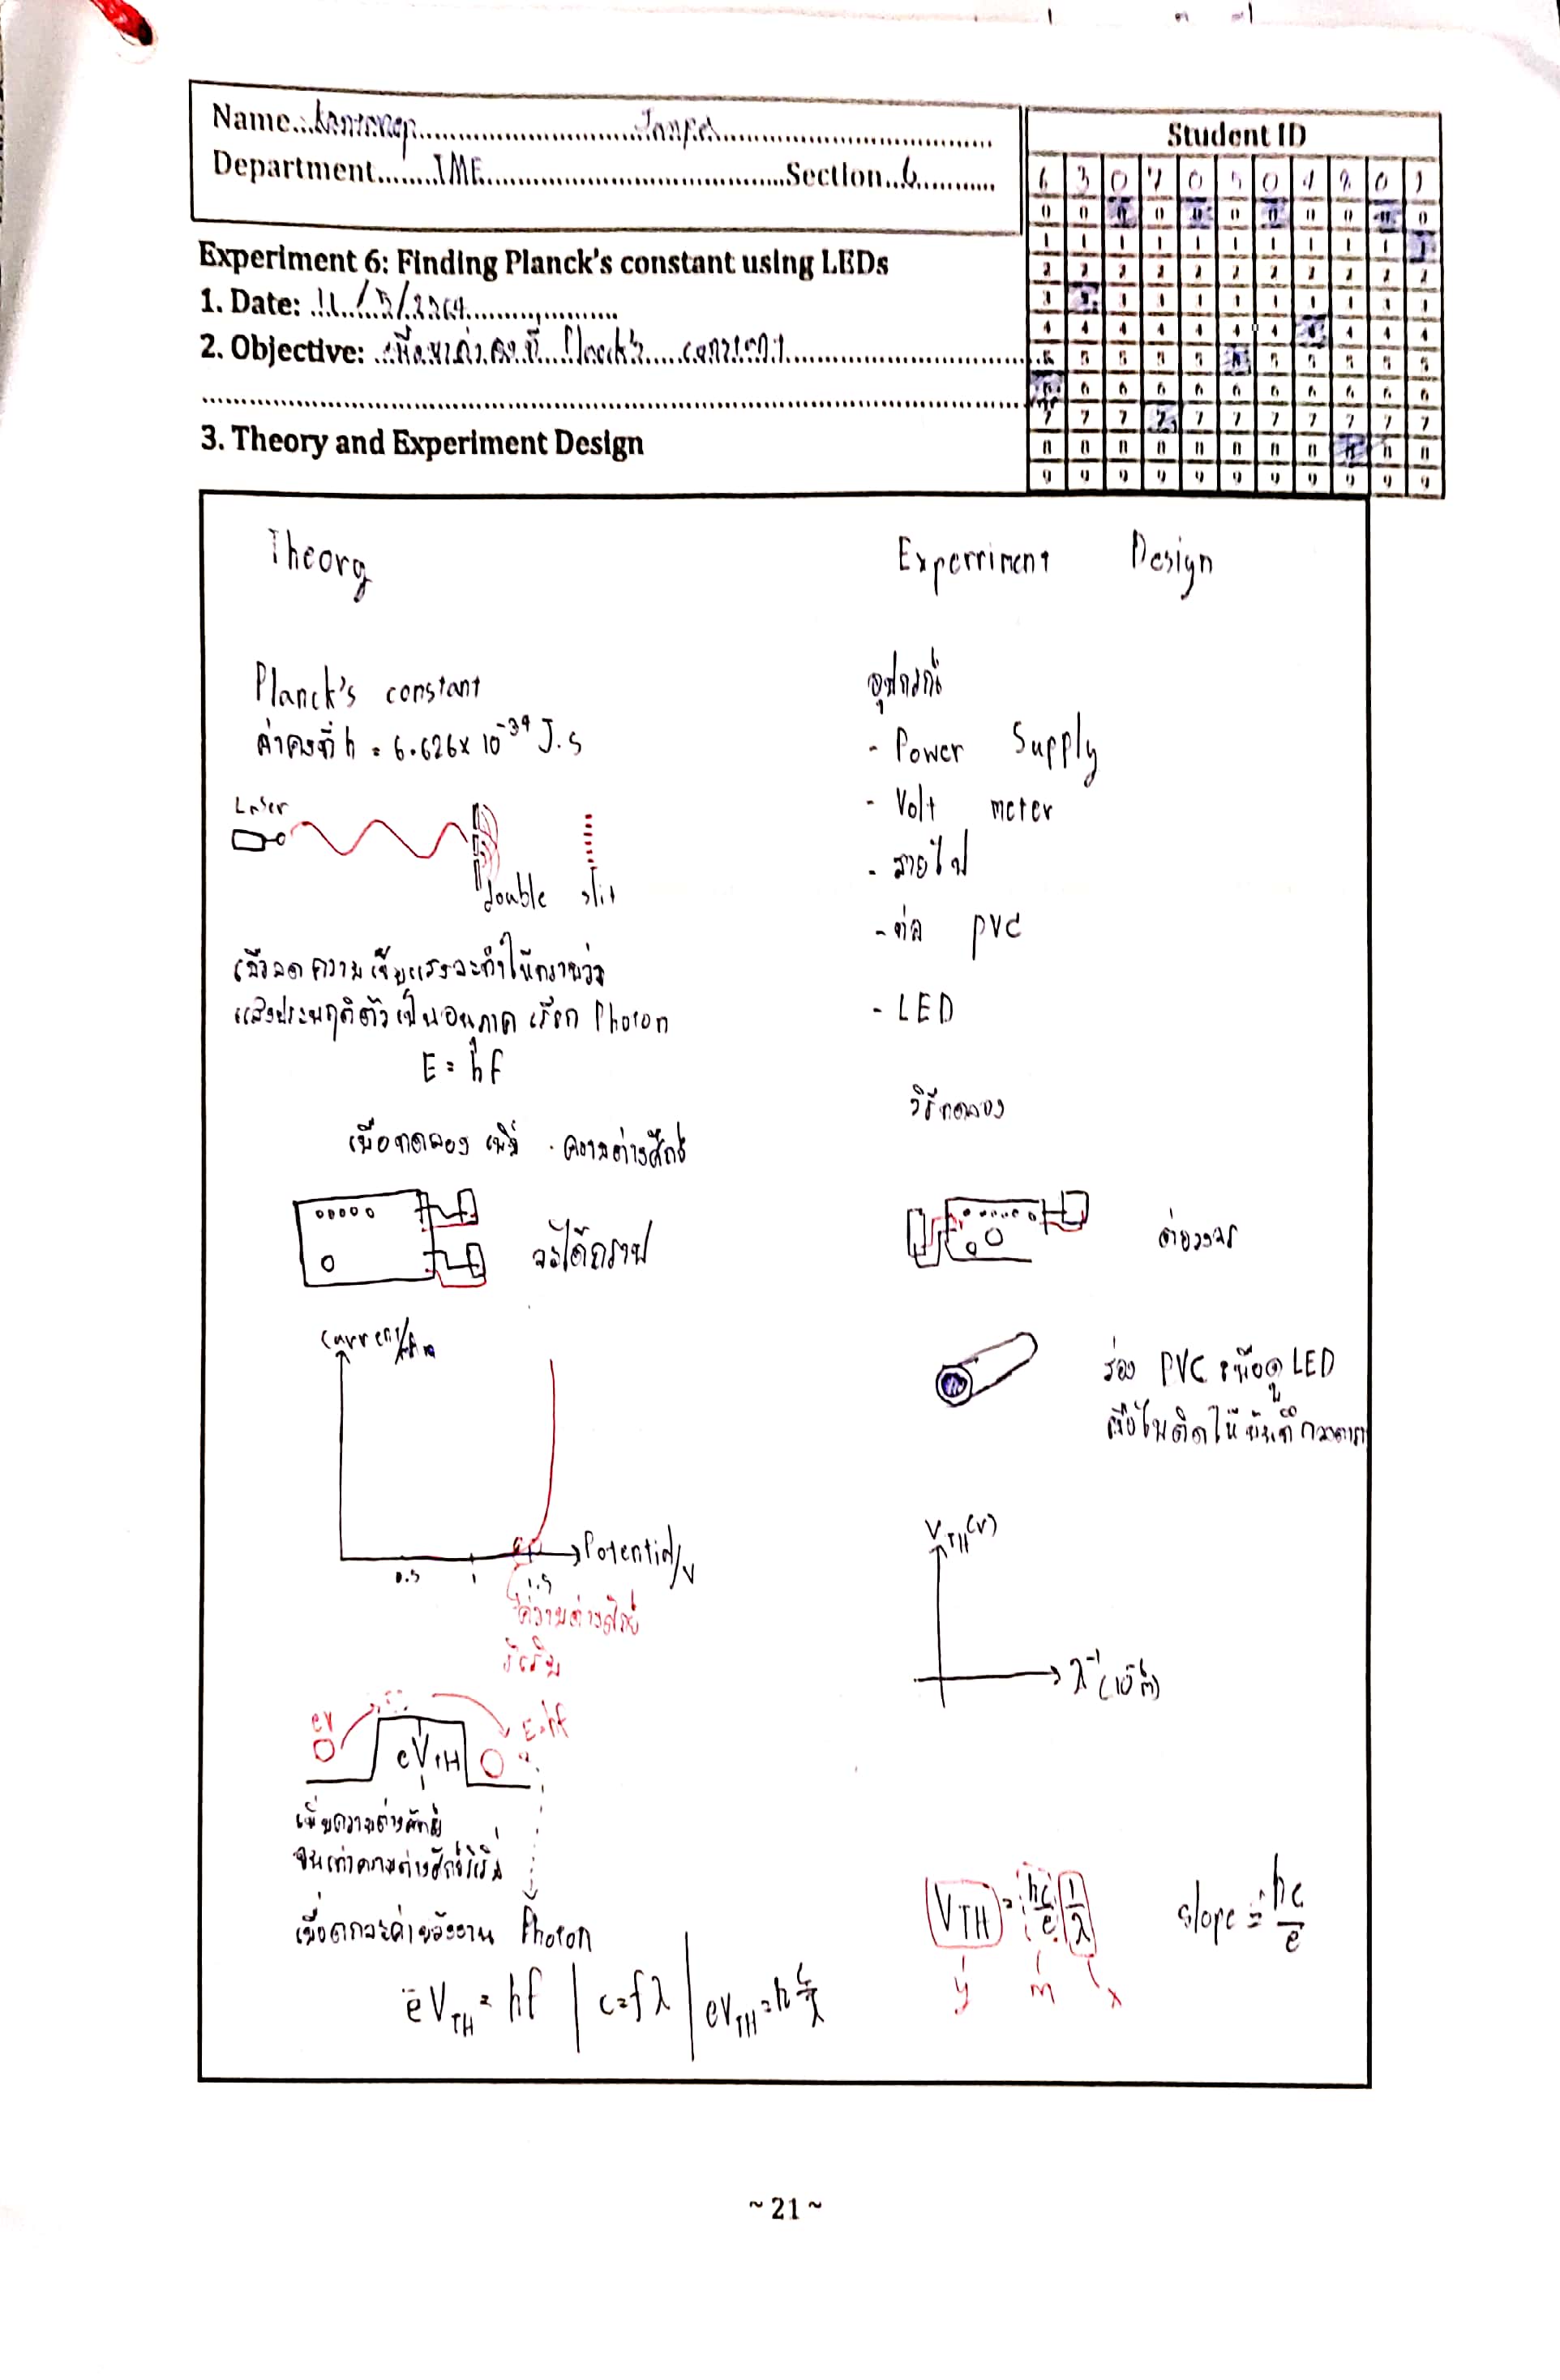 Name
Department IME Section 6
Student ID
6 3 0 7 0 5 0 4 8 0 1
0 0 0 0 0 0 0 0 0 0 0
1 1 1 1 1 1 1 1 1 1 1
2 2 2 2 2 2 2 2 2 2 2
3 3 3 3 3 3 3 3 3 3 3
4 4 4 4 4 4 4 4 4 4 4
5 5 5 5 5 5 5 5 5 5 5
6 6 6 6 6 6 6 6 6 6 6
7 7 7 7 7 7 7 7 7 7 7
8 8 8 8 8 8 8 8 8 8 8
9 9 9 9 9 9 9 9 9 9 9
Experiment 6: Finding Planck's constant using LEDs
1. Date: 11/5/2564
2. Objective: เพื่อหาค่าคงที่ Planck's constant
3. Theory and Experiment Design
Theory
Planck's constant
ค่าคงที่ h = 6.626 x 10⁻³⁴ J.s
Laser
double slit
เมื่อลดความเข้มแสงจะทำให้ทราบว่า
แสงประพฤติตัวเป็นอนุภาค เรียก Photon
E = hf
เมื่อทดลอง เพิ่ม ความต่างศักย์
จะได้กราฟ
Current/
Potential/V
0.5 1 1.5
ความต่างศักย์
เริ่ม
eV
eV_TH
E=hf
เพิ่มความต่างศักย์
จนเท่าความต่างศักย์เริ่ม
เมื่อตกจะค่าพลังงาน Photon
eV_TH = hf | c=fλ | eV_TH = h c/λ
Experriment Design
อุปกรณ์
- Power Supply
- Volt meter
- สายไฟ
- ท่อ PVC
- LED
วิธีทดลอง
ต่อวงจร
ส่อง PVC เพื่อดู LED
V_TH (V)
λ⁻¹ (10⁻⁶ m)
V_TH = hc/e 1/λ
y m x
slope = hc/e
~ 21 ~